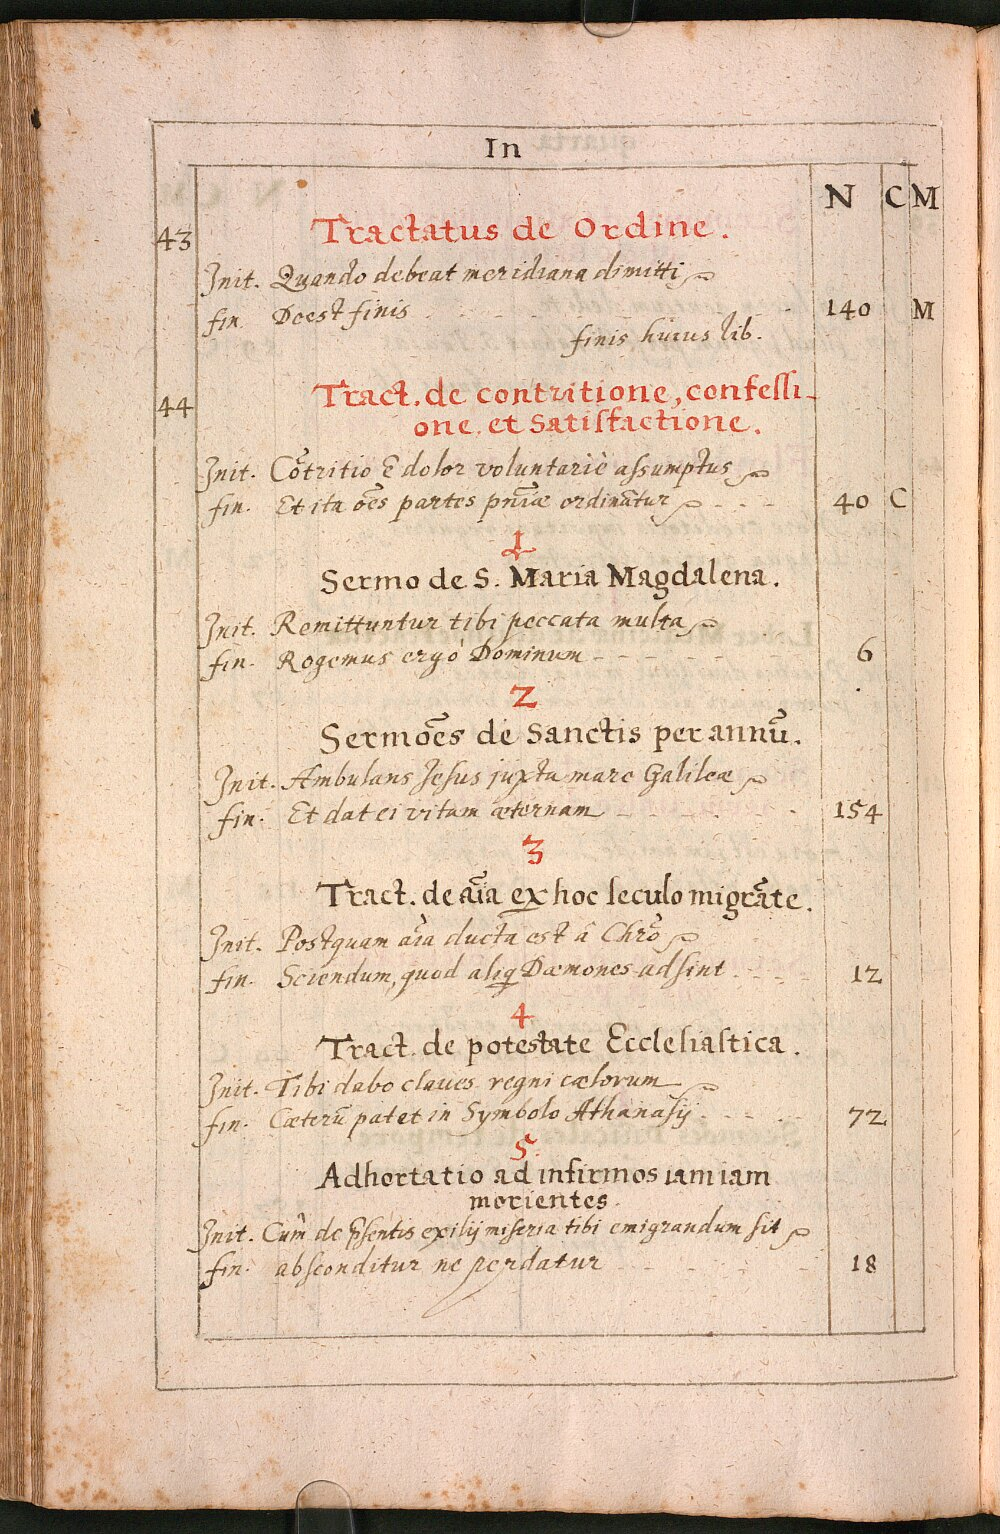 In
N C M
43 Tractatus de Ordine.
Init. Quando debeat meridiana dimitti
fin. Deest finis 140 M
finis huius lib.
44 Tract. de contritione, confessi-
one. et Satisfactione.
Init. Cõtritio E dolor voluntariè assumptus
fin. Et ita oẽs partes pnĩæ ordinãtur 40 C
1
Sermo de S. Maria Magdalena.
Init. Remittuntur tibi peccata multa
fin. Rogemus ergò Dominum 6
2
Sermoẽs de Sanctis per annũ.
Init. Ambulans Jesus juxta mare Galileæ
fin. Et dat ei vitam æternam 154
3
Tract. de aĩa ex hoc seculo migrãte.
Init. Postquam aĩa ducta est â Chrõ
fin. Sciendum, quod aliq Dæmones adsint 12
4
Tract. de potestate Ecclesiastica.
Init. Tibi dabo claues regni cælorum
fin. Cæterũ patet in Symbolo Athanasij 72
5.
Adhortatio ad infirmos iamiam
morientes.
Init. Cum̃ de p̃sentis exilij miseria tibi emigrandum sit
fin. absconditur ne perdatur 18